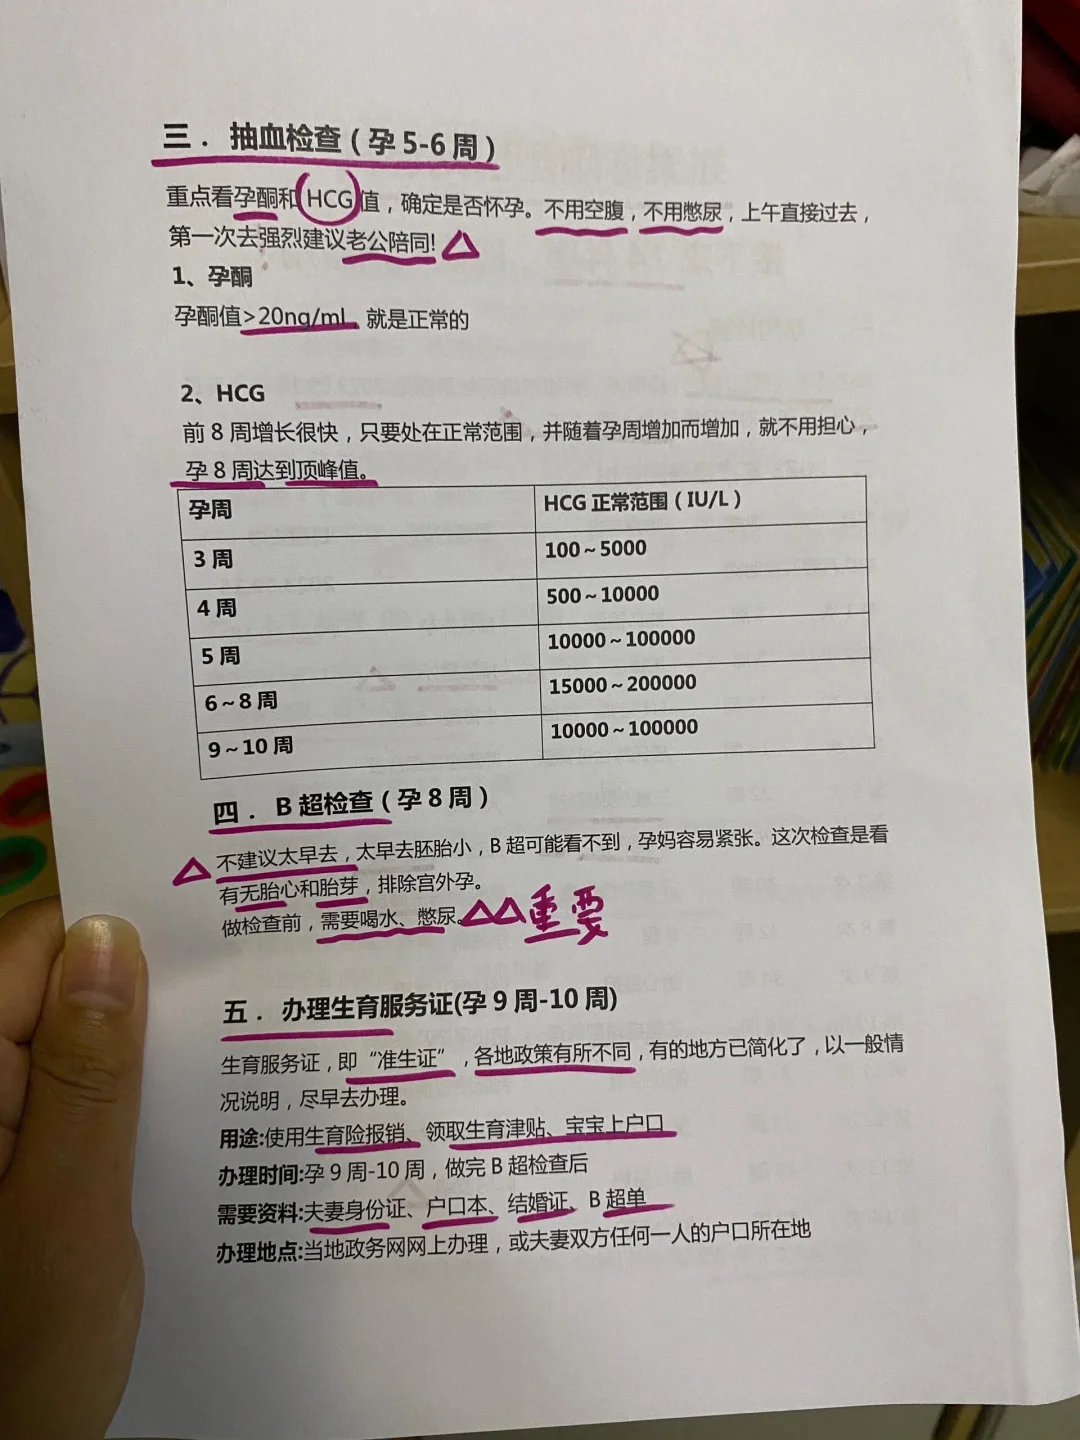 三．抽血检查（孕5-6周）
重点看孕酮和HCG值，确定是否怀孕。不用空腹，不用憋尿，上午直接过去，
第一次去强烈建议老公陪同!
1、孕酮
孕酮值>20ng/ml，就是正常的
2、HCG
前8周增长很快，只要处在正常范围，并随着孕周增加而增加，就不用担心，
孕8周达到顶峰值。
孕周 HCG正常范围（IU/L）
3周 100～5000
4周 500～10000
5周 10000～100000
6～8周 15000～200000
9～10周 10000～100000
四．B超检查（孕8周）
不建议太早去，太早去胚胎小，B超可能看不到，孕妈容易紧张。这次检查是看
有无胎心和胎芽，排除宫外孕。
做检查前，需要喝水、憋尿。重要
五．办理生育服务证(孕9周-10周)
生育服务证，即“准生证”，各地政策有所不同，有的地方已简化了，以一般情
况说明，尽早去办理。
用途:使用生育险报销、领取生育津贴、宝宝上户口
办理时间:孕9周-10周，做完B超检查后
需要资料:夫妻身份证、户口本、结婚证、B超单
办理地点:当地政务网网上办理，或夫妻双方任何一人的户口所在地